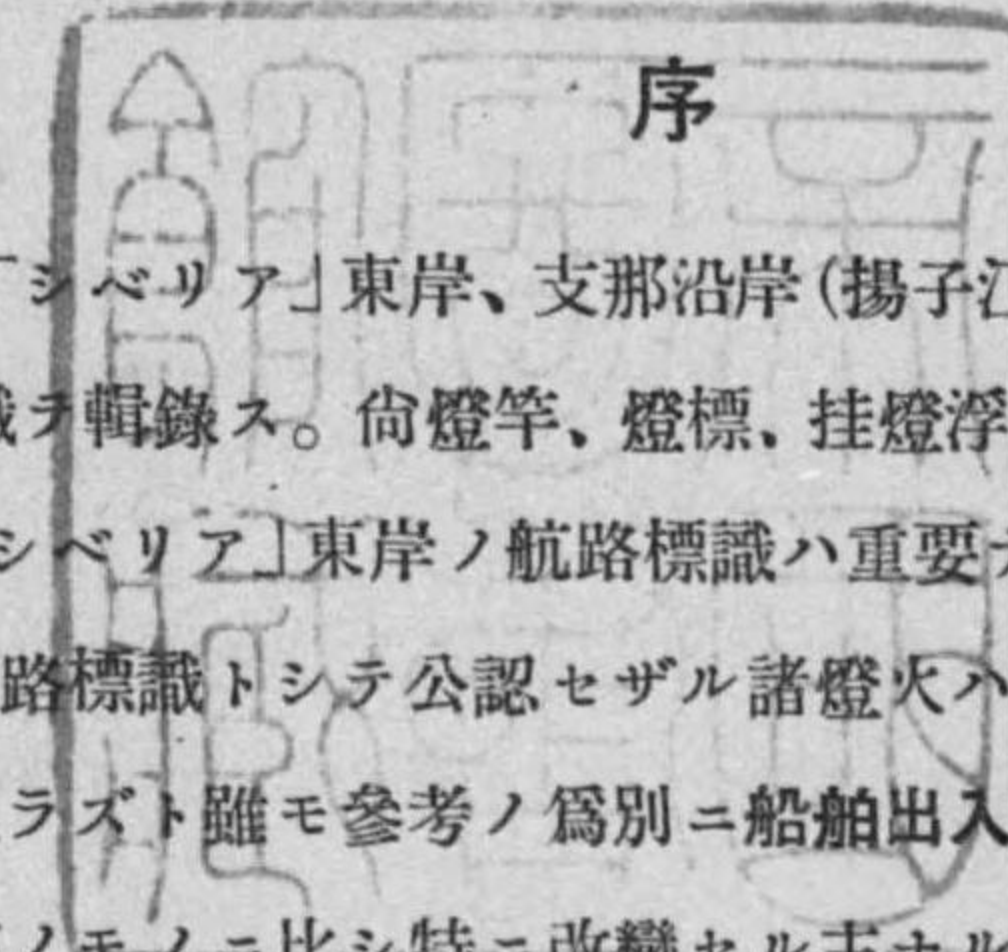 序
「シベリア」東岸、支那沿岸(揚子江
テ輯錄ス。尙燈竿、燈標、挂燈浮
シベリア」東岸ノ航路標識ハ重要
路標識トシテ公認セザル諸燈火ハ
ラズト雖モ參考ノ爲別ニ船舶出入
ノモノニ比シ特ニ改變セル